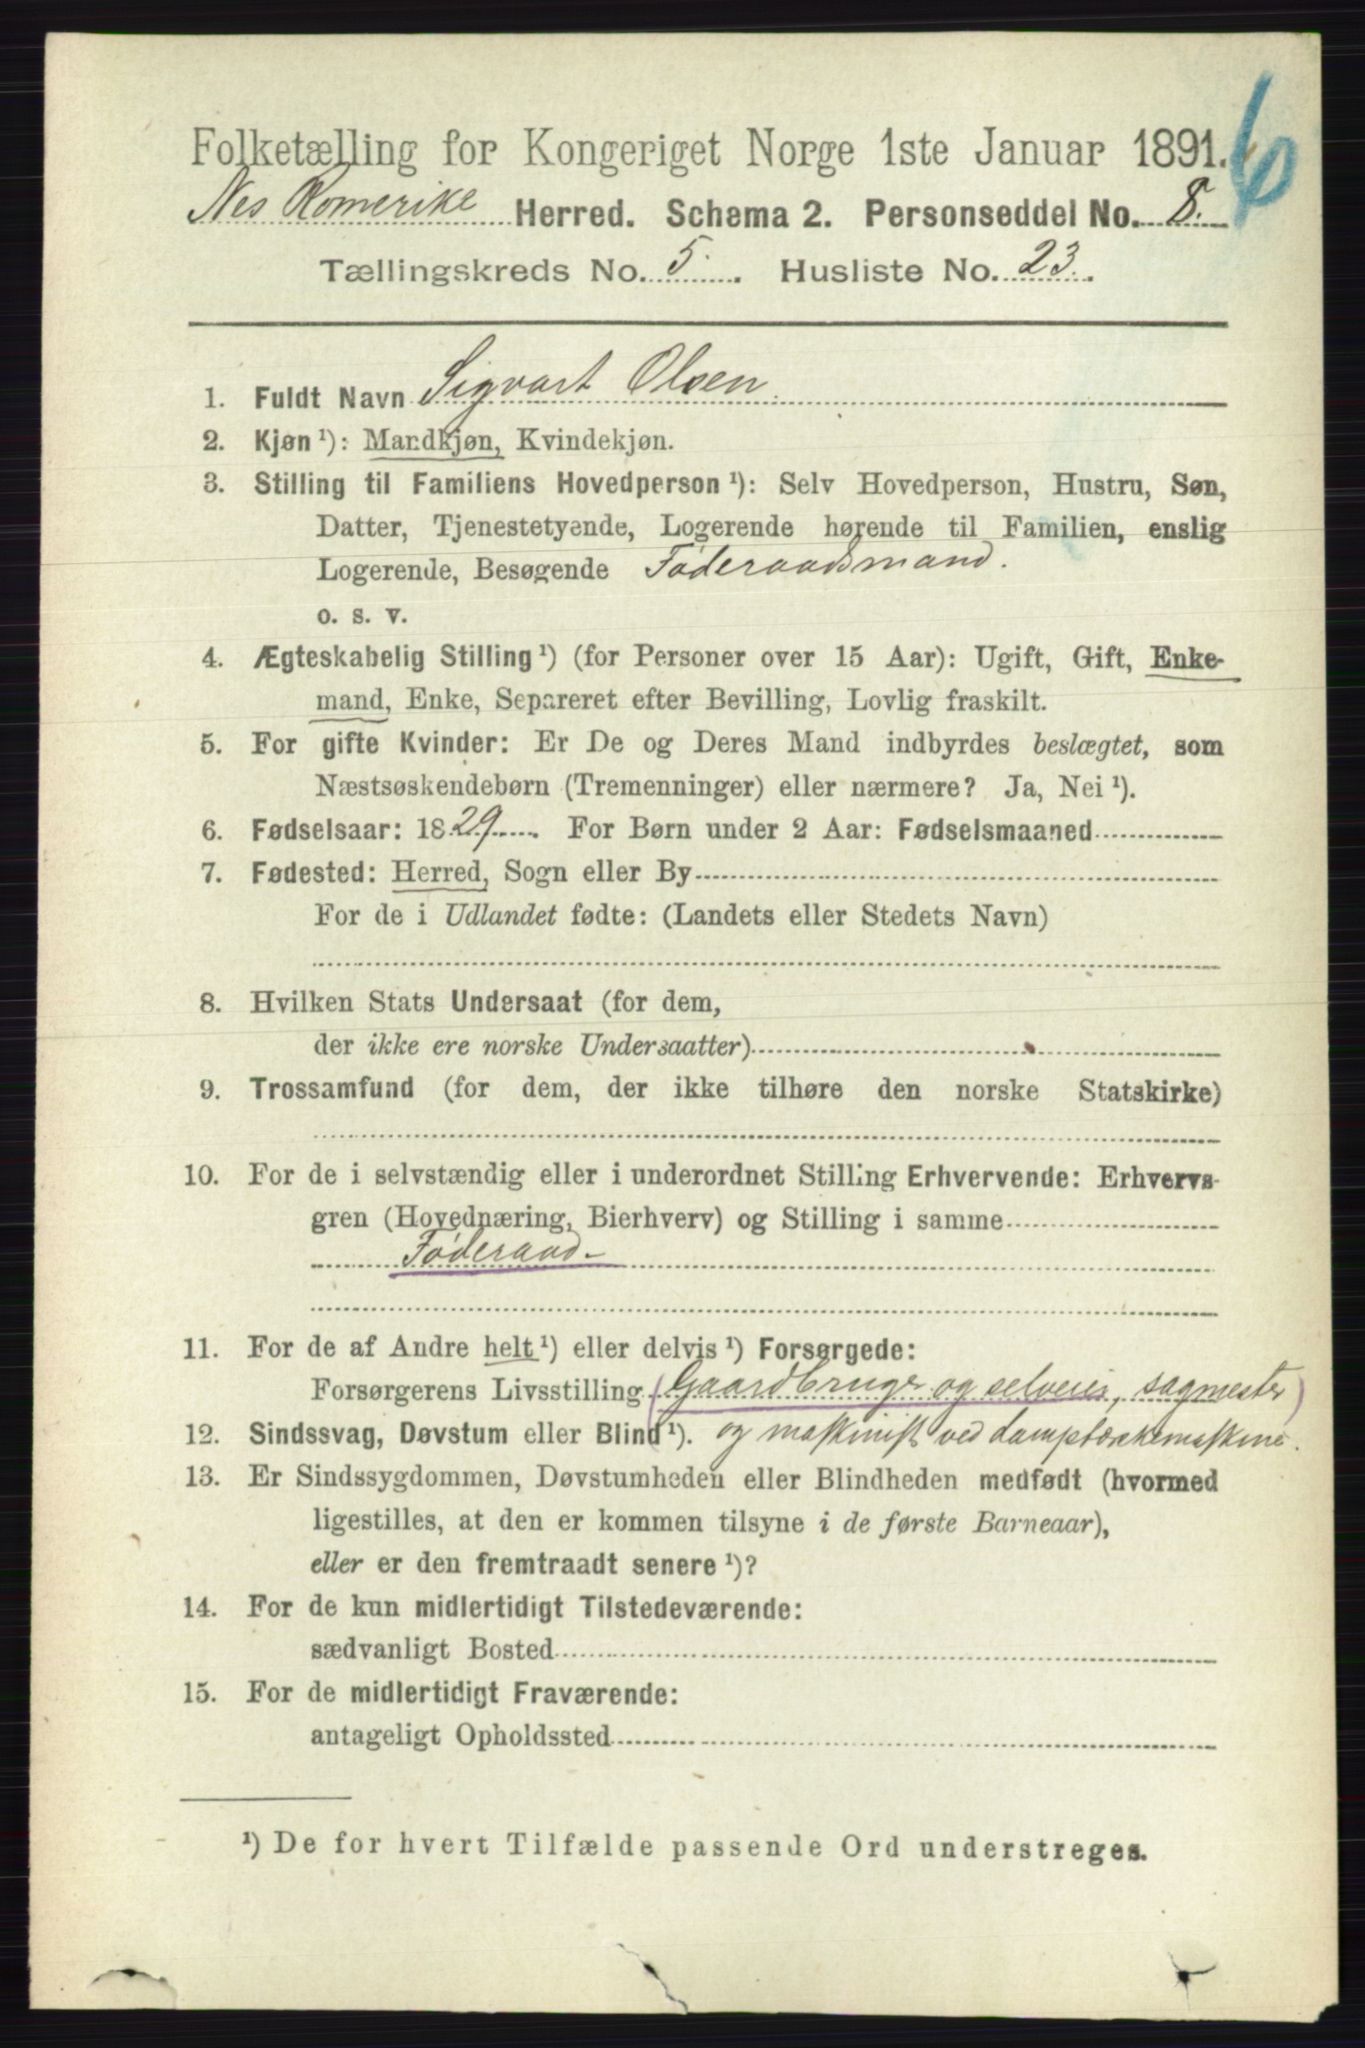 6
Folketælling for Kongeriget Norge 1ste Januar 1891.
Nes Romerike Herred. Schema 2. Personseddel No. 8.
Tællingskreds No. 5. Husliste No. 23.
1. Fuldt Navn Sigvart Olsen.
2. Kjøn ¹): Mandkjøn, Kvindekjøn.
3. Stilling til Familiens Hovedperson ¹): Selv Hovedperson, Hustru, Søn,
Datter, Tjenestetyende, Logerende hørende til Familien, enslig
Logerende, Besøgende Føderaadsmand.
o. s. v.
4. Ægteskabelig Stilling ¹) (for Personer over 15 Aar): Ugift, Gift, Enke-
mand, Enke, Separeret efter Bevilling, Lovlig fraskilt.
5. For gifte Kvinder: Er De og Deres Mand indbyrdes beslægtet, som
Næstsøskendebørn (Tremenninger) eller nærmere? Ja, Nei ¹).
6. Fødselsaar: 1829. For Børn under 2 Aar: Fødselsmaaned
7. Fødested: Herred, Sogn eller By
For de i Udlandet fødte: (Landets eller Stedets Navn)
8. Hvilken Stats Undersaat (for dem,
der ikke ere norske Undersaatter)
9. Trossamfund (for dem, der ikke tilhøre den norske Statskirke)
10. For de i selvstændig eller i underordnet Stilling Erhvervende: Erhvervs-
gren (Hovednæring, Bierhverv) og Stilling i samme
Føderaad-
11. For de af Andre helt ¹) eller delvis ¹) Forsørgede:
Forsørgerens Livsstilling (Gaardbruger og selveier, sagmester)
12. Sindssvag, Døvstum eller Blind ¹). og maskinist ved damptærskemaskine.
13. Er Sindssygdommen, Døvstumheden eller Blindheden medfødt (hvormed
ligestilles, at den er kommen tilsyne i de første Barneaar),
eller er den fremtraadt senere ¹)?
14. For de kun midlertidigt Tilstedeværende:
sædvanligt Bosted
15. For de midlertidigt Fraværende:
antageligt Opholdssted
¹) De for hvert Tilfælde passende Ord understreges.